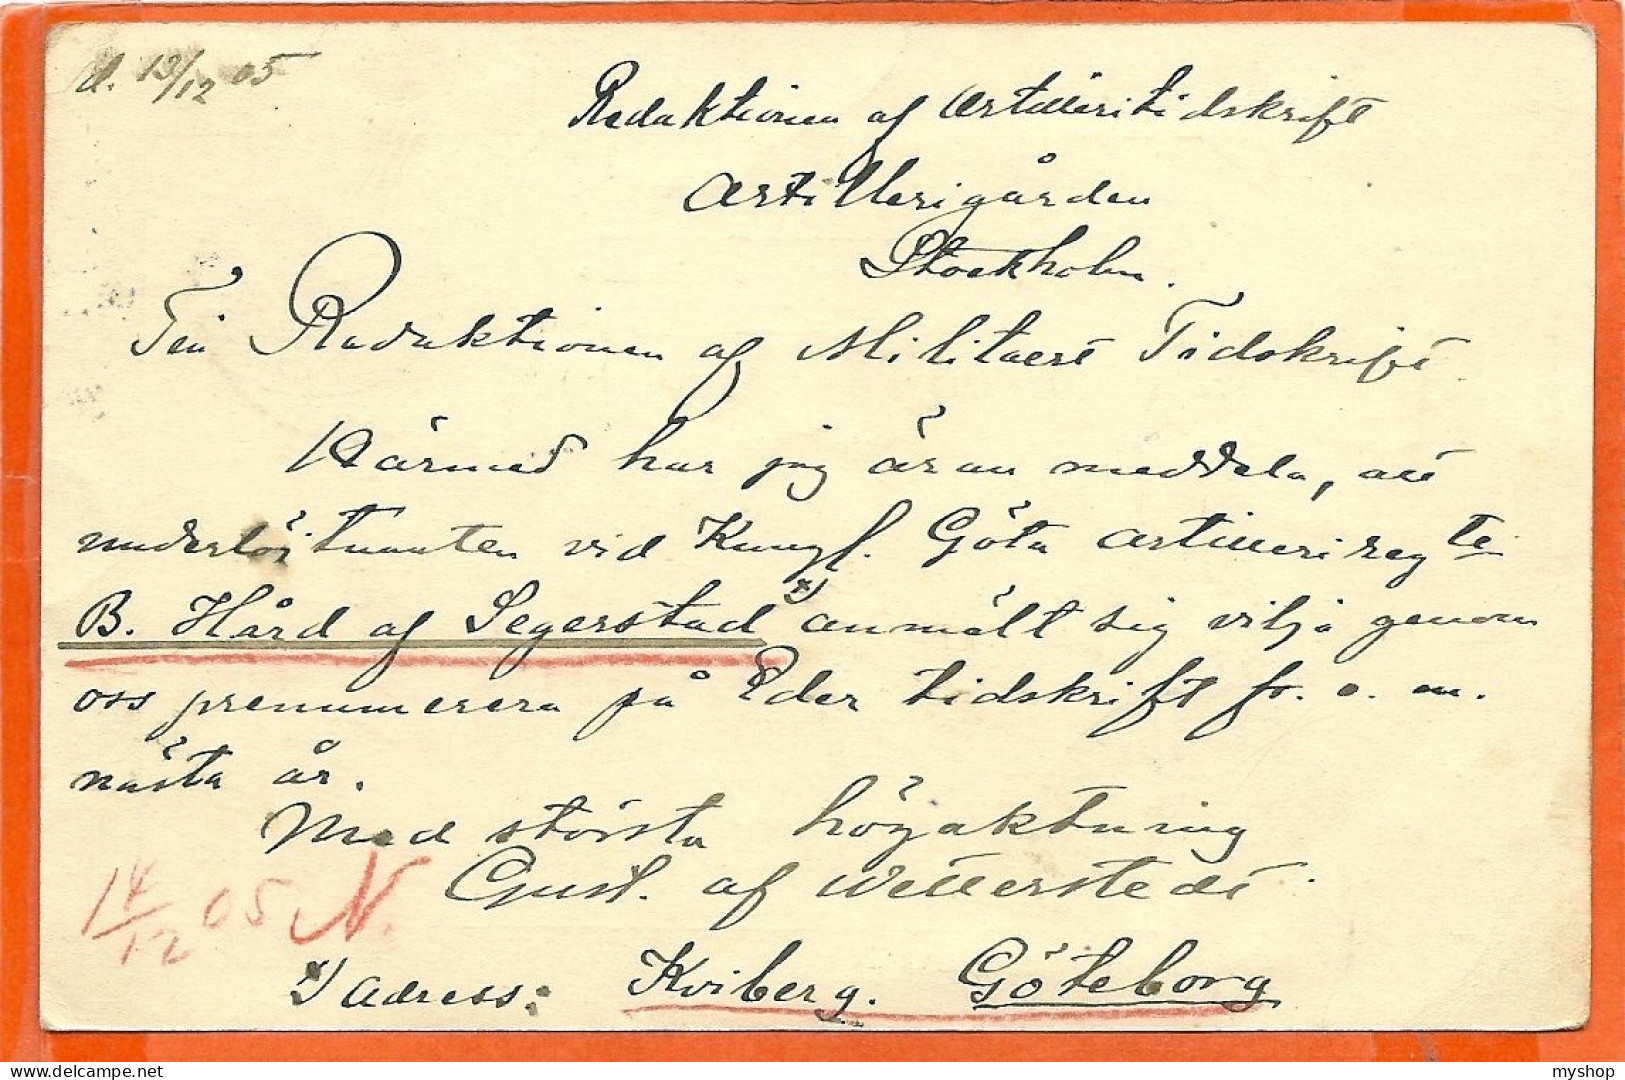 d. 13/12 05
Redaktionen af Artilleritidskrift
Artillerigården
Stockholm.
Till Redaktionen af Militaert Tidskrift.
Härmed har jag äran meddela, att
underlöjtnanten vid Kungl. Göta artillerireg te
B. Hård af Segerstad x) anmält sig vilja genom
oss prenumerera på Eder tidskrift fr. o. m.
nästa år.
Med största högaktning
Gust. af Wetterstedt.
14/12 05 N.
x) Adress: Kviberg. Göteborg
delcampe.net
myshop